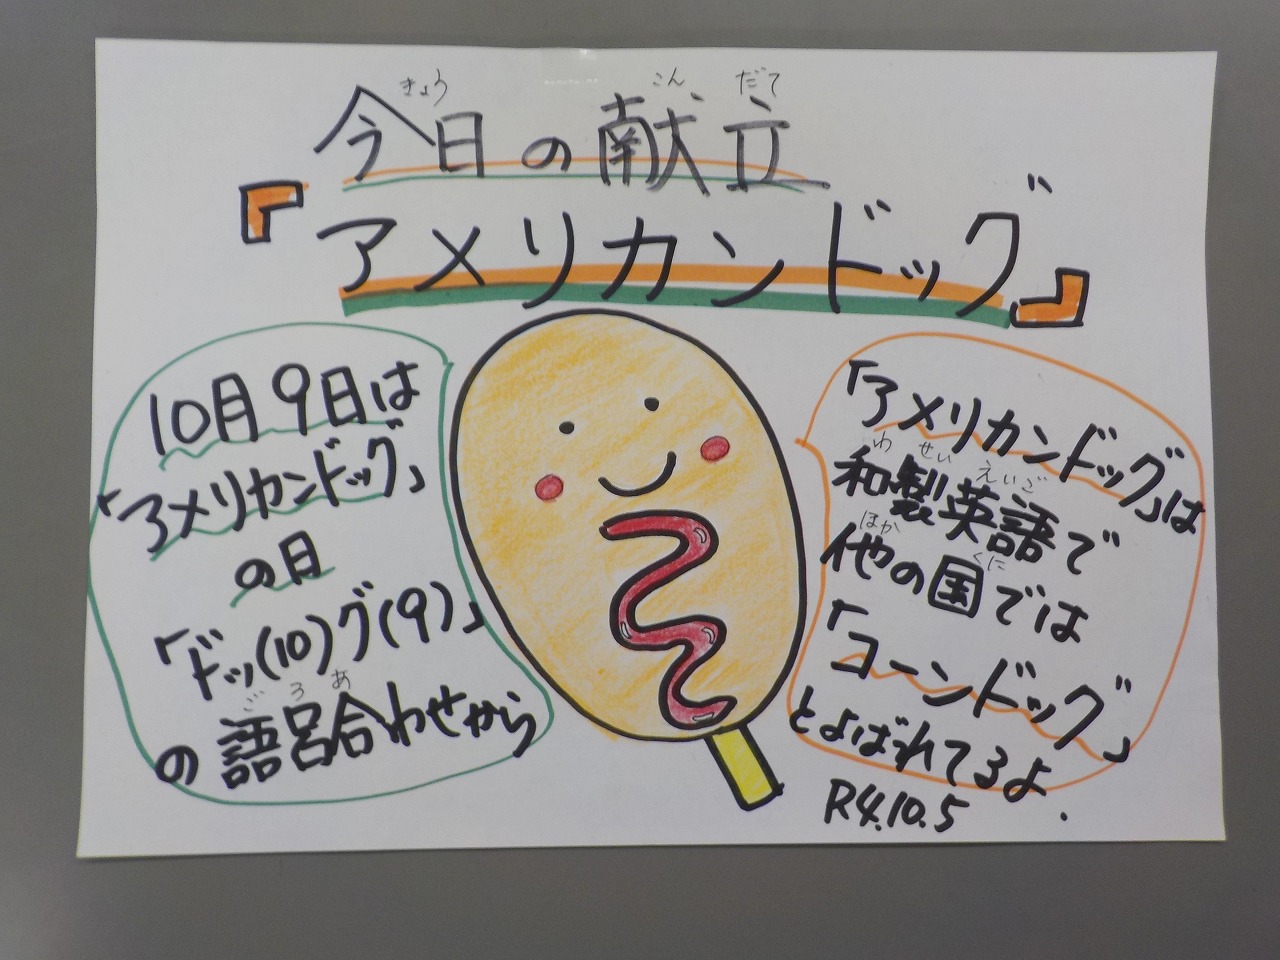 今日の献立
きょう こん だて
『アメリカンドッグ』
10月9日は
「アメリカンドッグ」
の日
「ドッ(10)グ(9)」
ごろあ
の語呂合わせから
「アメリカンドッグ」は
わ せい えいご
和製英語で
ほか くに
他の国では
「コーンドッグ」
とよばれてるよ.
R4.10.5